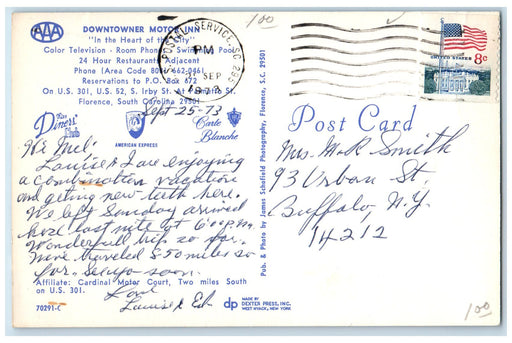 AAA
DOWNTOWNER MOTOR INN
"In the Heart of the City"
Color Television - Room Phones - Swimming Pool
24 Hour Restaurant Adjacent
Phone (Area Code 803) 662-0461
Reservations to P.O. Box 672
On U.S. 301, U.S. 52, S. Irby St. At
Florence, South Carolina 29501
The
Diners'
Club
AMERICAN EXPRESS
Carte
Blanche
Sept 25-73
Hi Mel:
Louise & I are enjoying
a combination vacation
and getting new teeth here.
We left Sunday arrived
here last nite at 6:00 p.m.
Wonderful trip so far.
Have traveled 850 miles so
far. See you soon.
Love
Louise & Ed
Affiliate: Cardinal Motor Court, Two miles South
on U.S. 301.
70291-C
Pub. & Photo by James Schofield Photography, Florence, S.C. 29501
dp
MADE BY
DEXTER PRESS, INC.
WEST NYACK, NEW YORK
1.00
POSTAL SERVICE, SC 295
PM
SEP
1973
8c
UNITED STATES
Post Card
Mrs. M.R. Smith
93 Urban St.
Buffalo, N.Y.
14212
1.00